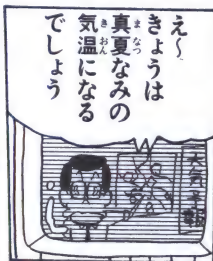 え〜
きょうは
真夏なみの
気温になる
でしょう
天気予報